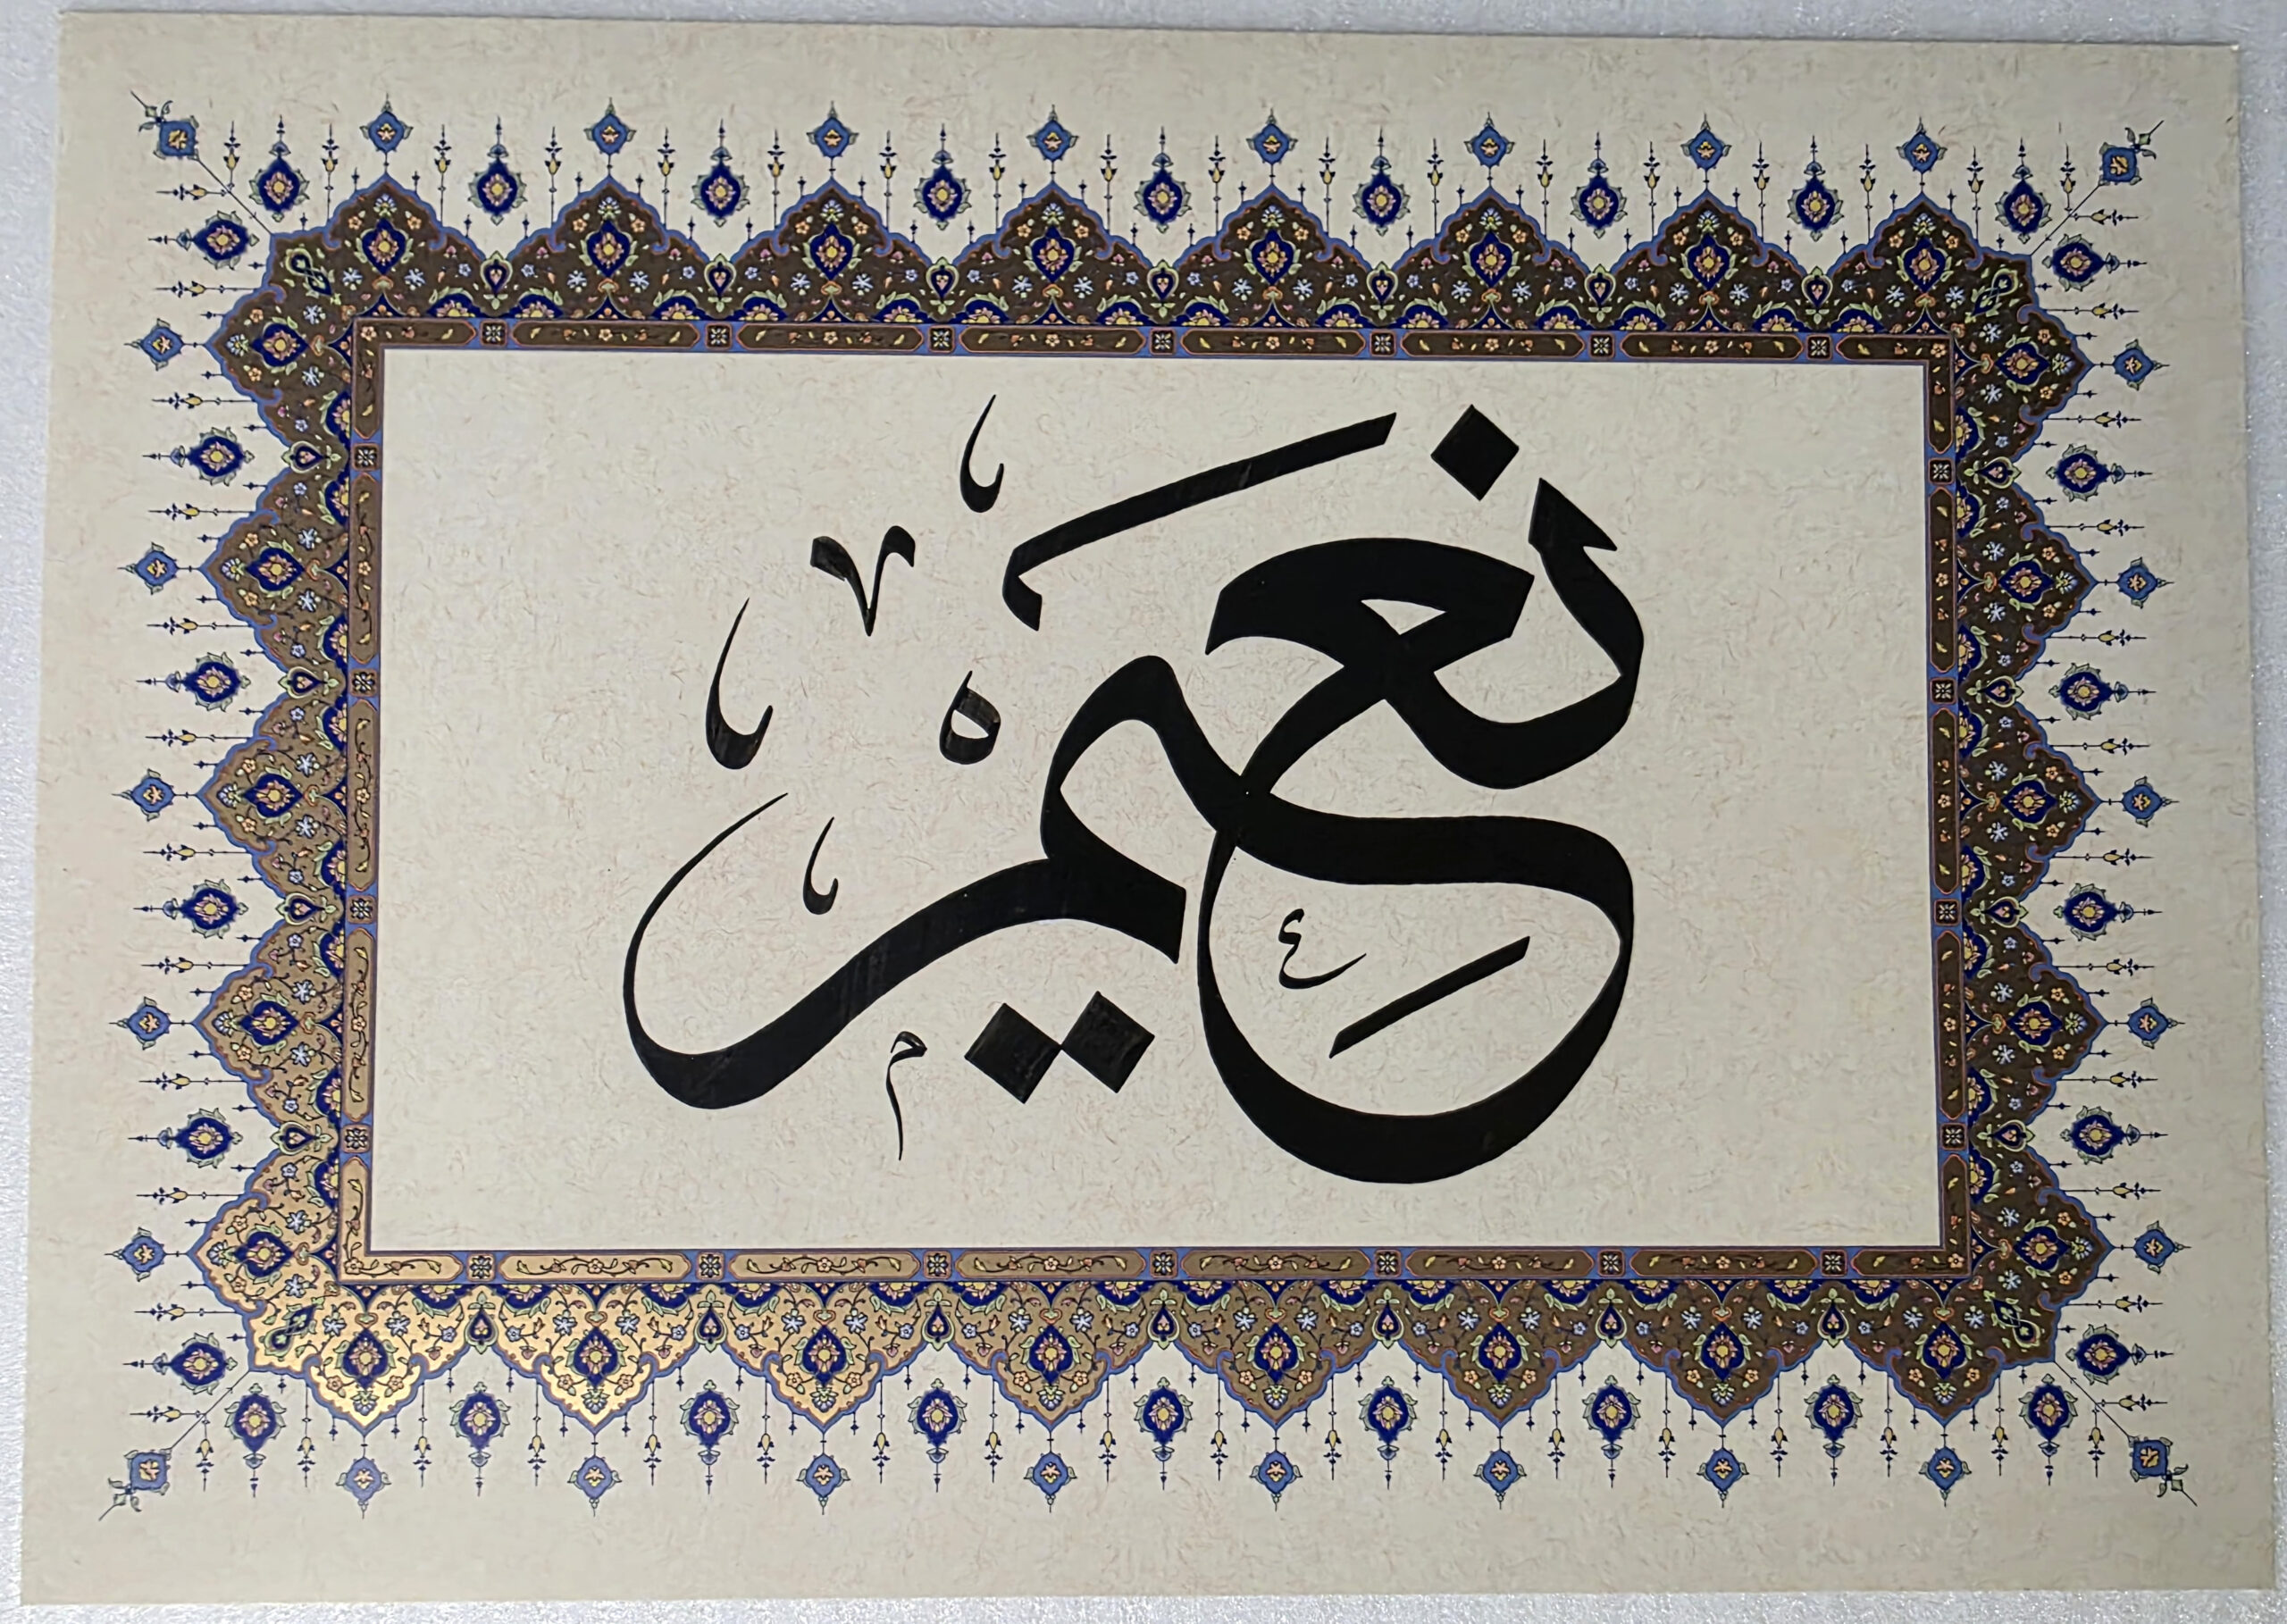 نعيم